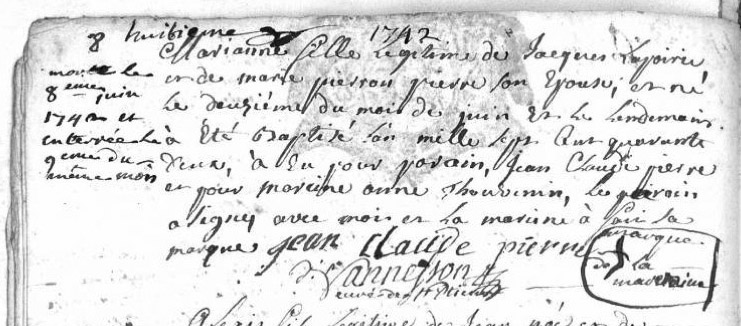 8 huitieme 1742
Marianne fille legitime de Jacques
et de marie pierson pierre son Epouse, est né
le deuziéme du moi de juin et le lendemain
à Eté baptisé lan mille sept Cent quarante
deux, à Eu pour parain, Jean Claude pierre
et pour maraine anne Thouvenin, le parain
a signé avec moi et la maraine à fait sa
marque jean claude pierre
D Vannesson
curé de St
morte le
8eme juin
1742 et
enterrée le
9eme du
même mois
marque
de la
maraine
fils legitime de Jean